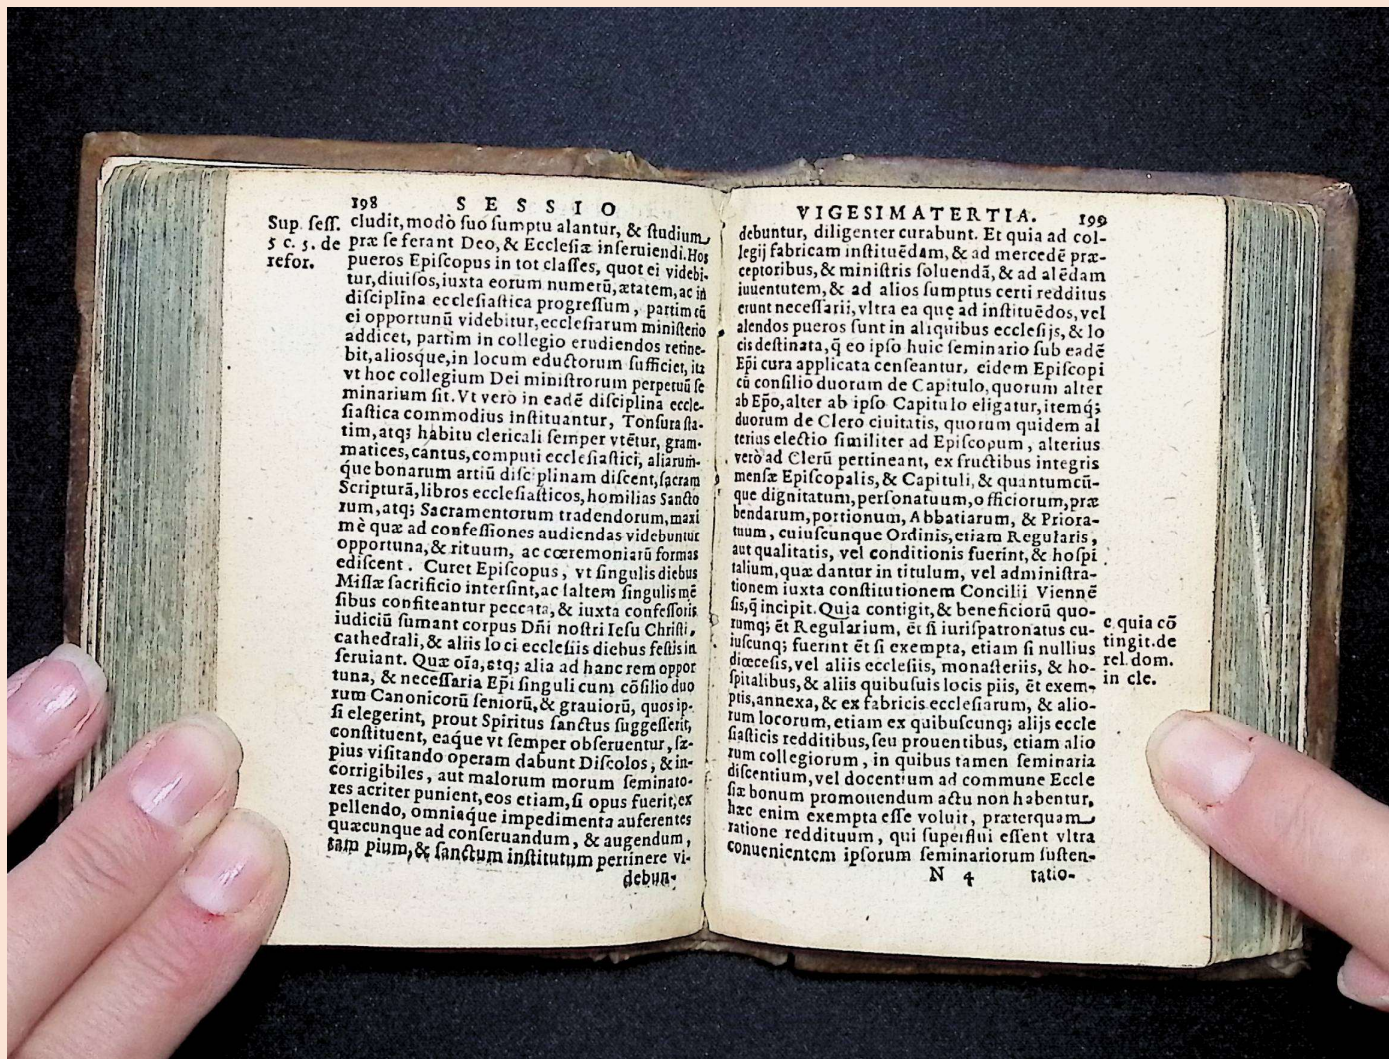 198 SESSIO
Sup. ſeſſ.
5 c. 5. de
refor.
cludit, modò ſuo ſumptu alantur, & ſtudium
præ ſe ferant Deo, & Eccleſiæ inſeruiendi. Hos
pueros Epiſcopus in tot claſſes, quot ei videbi-
tur, diuiſos, iuxta eorum numerū, ætatem, ac in
diſciplina eccleſiaſtica progreſſum, partim cū
ei opportunū videbitur, eccleſiarum miniſterio
addicet, partim in collegio erudiendos retine-
bit, alioſque, in locum eductorum ſufficiet, ita
vt hoc collegium Dei miniſtrorum perpetuū ſe
minarium ſit. Vt verò in eadē diſciplina eccle-
ſiaſtica commodius inſtituantur, Tonſura ſta-
tim, atq; habitu clericali ſemper vtētur, gram-
matices, cantus, computi eccleſiaſtici, aliarum-
que bonarum artiū diſciplinam diſcent, ſacram
Scripturā, libros eccleſiaſticos, homilias Sancto
rum, atq; Sacramentorum tradendorum, maxi
mè quæ ad confeſſiones audiendas videbuntur
opportuna, & rituum, ac cœremoniarū formas
ediſcent. Curet Epiſcopus, vt ſingulis diebus
Miſſæ ſacrificio interſint, ac ſaltem ſingulis mē
ſibus confiteantur peccata, & iuxta confeſſoris
iudiciū ſumant corpus Dñi noſtri Ieſu Chriſti,
cathedrali, & aliis loci eccleſiis diebus feſtis in
ſeruiant. Quæ oīa, atq; alia ad hanc rem oppor
tuna, & neceſſaria Epī ſinguli cum cōſilio duo
rum Canonicorū ſeniorū, & grauiorū, quos ip-
ſi elegerint, prout Spiritus ſanctus ſuggeſſerit,
conſtituent, eaque vt ſemper obſeruentur, ſæ-
pius viſitando operam dabunt Diſcolos, & in-
corrigibiles, aut malorum morum ſeminato-
res acriter punient, eos etiam, ſi opus fuerit, ex
pellendo, omniaque impedimenta auferentes
quæcunque ad conſeruandum, & augendum,
tam pium, & ſanctum inſtitutum pertinere vi-
debun-
VIGESIMATERTIA. 199
debuntur, diligenter curabunt. Et quia ad col-
legij fabricam inſtituēdam, & ad mercedē præ-
ceptoribus, & miniſtris ſoluendā, & ad alēdam
iuuentutem, & ad alios ſumptus certi redditus
erunt neceſſarii, vltra ea quę ad inſtituēdos, vel
alendos pueros ſunt in aliquibus eccleſijs, & lo
cis deſtinata, q̄ eo ipſo huic ſeminario ſub eadē
Epī cura applicata cenſeantur, eidem Epiſcopi
cū conſilio duorum de Capitulo, quorum alter
ab Epō, alter ab ipſo Capitulo eligatur, itemq;
duorum de Clero ciuitatis, quorum quidem al
terius electio ſimiliter ad Epiſcopum, alterius
verò ad Clerū pertineant, ex fructibus integris
menſæ Epiſcopalis, & Capituli, & quantumcū-
que dignitatum, perſonatuum, officiorum, præ
bendarum, portionum, Abbatiarum, & Priora-
tuum, cuiuſcunque Ordinis, etiam Regularis,
aut qualitatis, vel conditionis fuerint, & hoſpi
talium, quæ dantur in titulum, vel adminiſtra-
tionem iuxta conſtitutionem Concilii Viennē
ſis, q̄ incipit. Quia contigit, & beneficiorū quo-
rumq; ēt Regularium, ēt ſi iuriſpatronatus cu-
iuſcunq; fuerint ēt ſi exempta, etiam ſi nullius
diœceſis, vel aliis eccleſiis, monaſteriis, & ho-
ſpitalibus, & aliis quibuſuis locis piis, ēt exem-
ptis, annexa, & ex fabricis eccleſiarum, & alio-
rum locorum, etiam ex quibuſcunq; alijs eccle
ſiaſticis redditibus, ſeu prouentibus, etiam alio
rum collegiorum, in quibus tamen ſeminaria
diſcentium, vel docentium ad commune Eccle
ſiæ bonum promouendum actu non habentur,
hæc enim exempta eſſe voluit, præterquam
ratione reddituum, qui ſuperflui eſſent vltra
conuenientem ipſorum ſeminariorum ſuſten-
N 4 tatio-
c. quia cō
tingit. de
rel. dom.
in cle.